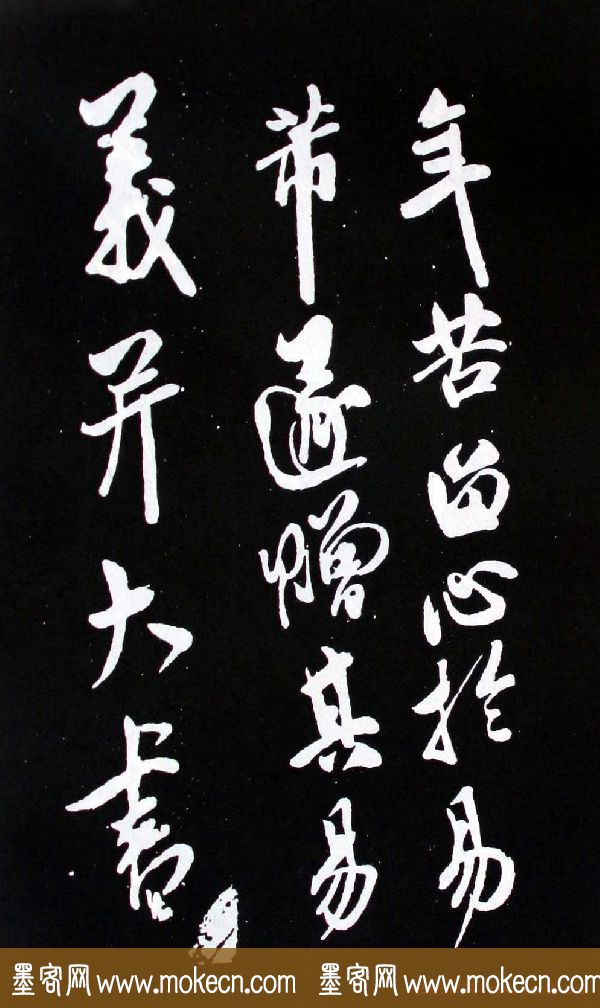 年苦留心於易
芾遂贈其易
義并大書
墨客网 www.mokecn.com 墨客网 www.mokecn.com